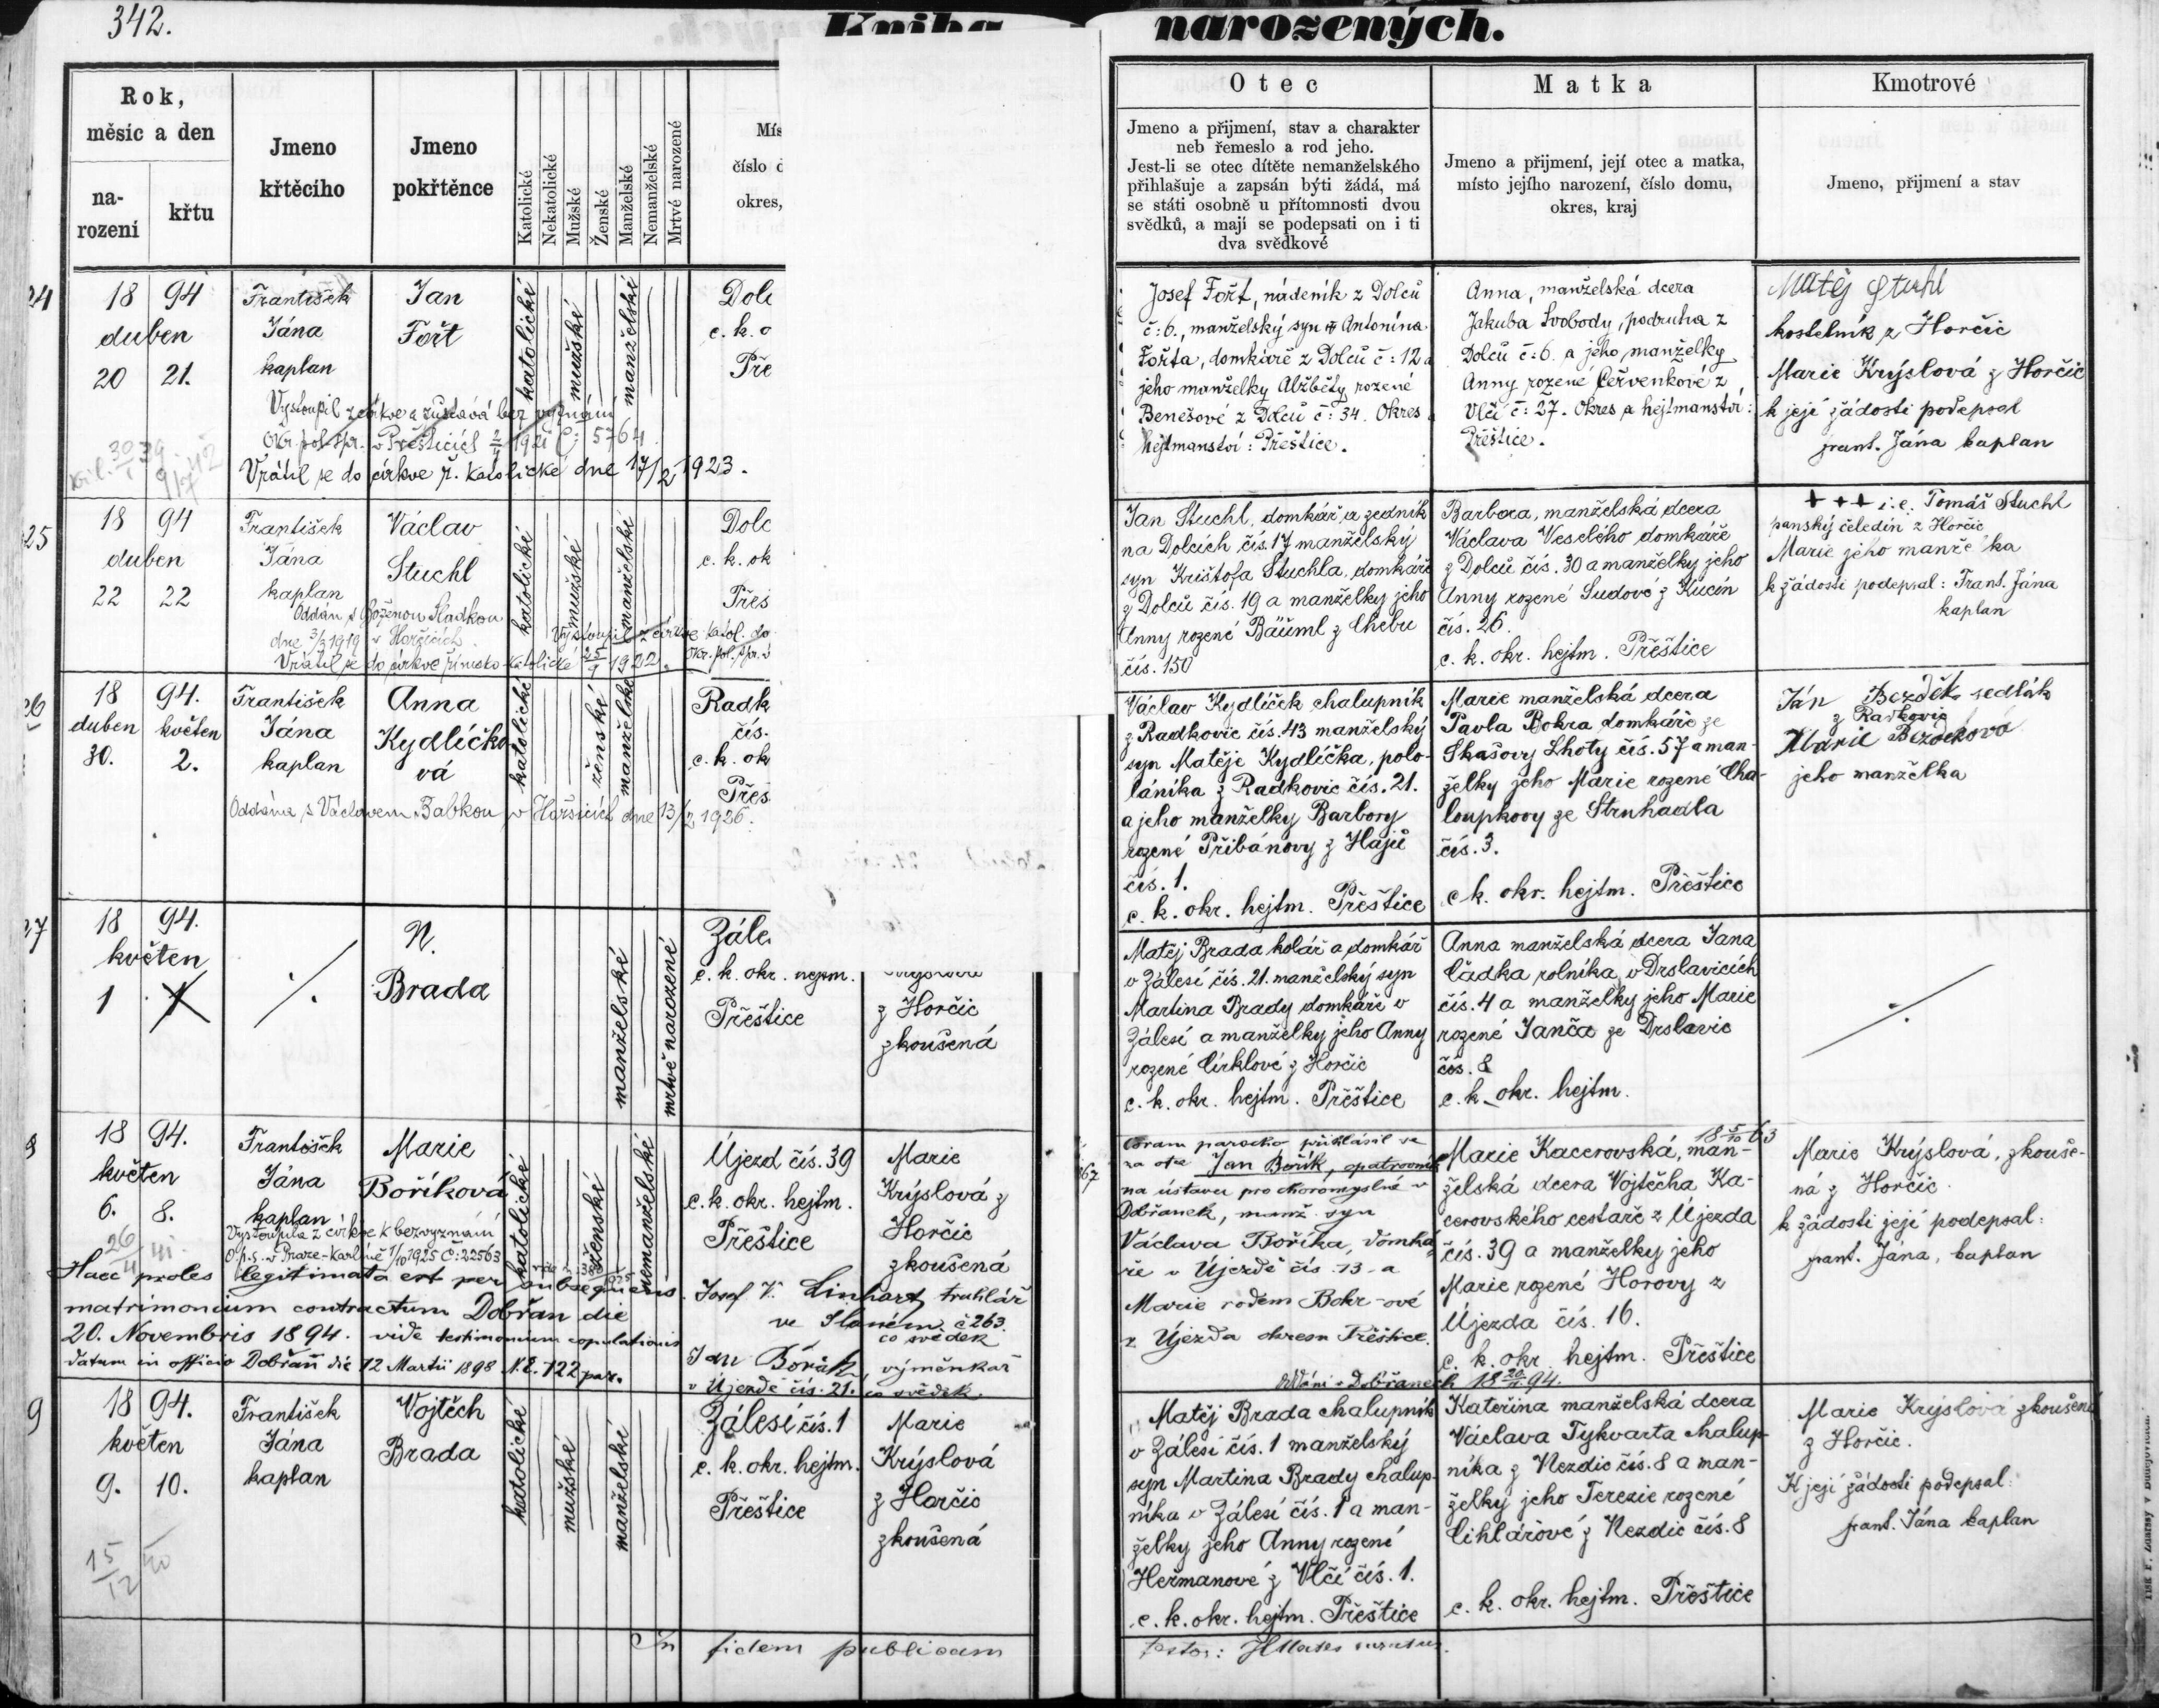 342.
Kniha narozených.
Rok,
měsíc a den
na-
rození
křtu
Jmeno
křtěcího
Jmeno
pokřtěnce
Katolické
Nekatolické
Mužské
Ženské
Manželské
Nemanželské
Mrtvé narozené
Mís
číslo d
okres,
Otec
Jmeno a přijmení, stav a charakter
neb řemeslo a rod jeho.
Jest-li se otec dítěte nemanželského
přihlašuje a zapsán býti žádá, má
se státi osobně u přítomnosti dvou
svědků, a mají se podepsati on i ti
dva svědkové
Matka
Jmeno a přijmení, její otec a matka,
místo jejího narození, číslo domu,
okres, kraj
Kmotrové
Jmeno, přijmení a stav
24
18 94
duben
20 21.
František
Jána
kaplan
Jan
Fořt
katolické
mužské
manželské
Dolc
c. k. o
Pře
Vystoupil z církve a zůstává bez vyznání
Okr. pol. spr. v Přešticích 1921 Č: 5764.
Vrátil se do církve ř. katolické dne 17/2 1923.
Josef Fořt, nádeník z Dolců
č: 6., manželský syn Antonína
Fořta, domkáře z Dolců č: 12 a
jeho manželky Alžběty rozené
Benešové z Dolců č: 34. Okres
hejtmanství: Přeštice.
Anna, manželská dcera
Jakuba Svobody, podruha z
Dolců č: 6. a jeho manželky
Anny rozené Červenkové z
Vlčí č: 27. Okres a hejtmanství:
Přeštice.
Matěj Stuhl
kostelník z Horčic
Marie Krýslová z Horčic
k její žádosti podepsal
frant. Jána kaplan
25
18 94
duben
22 22
František
Jána
kaplan
Václav
Stuchl
katolické
mužské
manželské
Dolc
c. k. ok
Přeš
Oddán s Boženou Sladkou
dne 3/2 1919 v Horšicích.
Vystoupil z církve katol. do
Okr. pol. spr. v
Vrátil se do církve římsko-katolické 25/9 1922.
Jan Stuchl, domkář a zedník
na Dolcích čís. 17 manželský
syn Krištofa Stuchla, domkáře
z Dolců čís. 19 a manželky jeho
Anny rozené Bäuml z Chebu
čís. 150
Barbora, manželská dcera
Václava Veselého domkáře
z Dolců čís. 30 a manželky jeho
Anny rozené Sudové z Kucín
čís. 26.
c. k. okr. hejtm. Přeštice
+++ i.e. Tomáš Stuchl
panský čeledín z Horčic
Marie jeho manželka
k žádosti podepsal: Frant. Jána
kaplan
26
18 94.
duben květen
30. 2.
František
Jána
kaplan
Anna
Kydlíčko-
vá
katolické
ženské
manželské
Radk
čís.
c. k. ok
Přeš
Oddána s Václavem Babkou v Horšicích dne 13/2 1926.
Václav Kydlíček chalupník
z Radkovic čís. 43 manželský
syn Matěje Kydlíčka, polo-
láníka z Radkovic čís. 21.
a jeho manželky Barbory
rozené Přibánovy z Hájů
čís. 1.
c. k. okr. hejtm. Přeštice
Marie manželská dcera
Pavla Bokra domkáře ze
Skašovy Lhoty čís. 57 a man-
želky jeho Marie rozené Cha-
loupkovy ze Struhadla
čís. 3.
c. k. okr. hejtm. Přeštice
Ján Bezděk sedlák
z Radkovic
Marie Bezděková
jeho manželka
27
18 94.
květen
1 1
N.
Brada
manželské
mrtvě narozené
Zále
c. k. okr. hejtm.
Přeštice
z Horčic
zkoušená
Matěj Brada kolář a domkář
v Zálesí čís. 21. manželský syn
Martina Brady domkáře v
Zálesí a manželky jeho Anny
rozené Cirklové z Horčic
c. k. okr. hejtm. Přeštice
Anna manželská dcera Jana
Čádka rolníka v Drslavicích
čís. 4 a manželky jeho Marie
rozené Janča ze Drslavic
čís. 8
c. k. okr. hejtm.
8
18 94.
květen
6. 8.
František
Jána
kaplan
Marie
Boříková
katolické
ženské
nemanželské
Újezd čís. 39
c. k. okr. hejtm.
Přeštice
Marie
Krýslová z
Horčic
zkoušená
Vystoupila z církve k bezvyznání
O.p.s. v Praze-Karlíně 1/10 1925 Č: 22563
Haec proles legitimata est per subsequens
matrimonium contractum Dobřan die
20. Novembris 1894. vide testimonium copulationis
datum in officio Dobřan die 12 Martii 1898 N.E. 122 par.
Josef V. Linhart truhlář
ve Slaném č 263.
co svědek
Jan Bořík, výměnkař
v Újezdě čís. 21. co svědek.
Coram parocho přihlásil se
za otce Jan Bořík, opatrovník
na ústavu pro choromyslné v
Dobřanech, manž. syn
Václava Boříka, domká-
ře v Újezdě čís. 13 a
Marie rodem Bokr-ové
z Újezda okresu Přeštice.
Oddáni v Dobřanech 18 20/11 94.
18 5/10 63
Marie Kacerovská, man-
želská dcera Vojtěcha Ka-
cerovského cestáře z Újezda
čís. 39 a manželky jeho
Marie rozené Horovy z
Újezda čís. 16.
c. k. okr. hejtm. Přeštice
Marie Krýslová, zkouše-
ná z Horčic.
k žádosti její podepsal:
frant. Jána, kaplan
9
18 94.
květen
9. 10.
František
Jána
kaplan
Vojtěch
Brada
katolické
mužské
manželské
Zálesí čís. 1
c. k. okr. hejtm.
Přeštice
Marie
Krýslová
z Horčic
zkoušená
15/12
Matěj Brada chalupník
v Zálesí čís. 1 manželský
syn Martina Brady chalup-
níka v Zálesí čís. 1 a man-
želky jeho Anny rozené
Heřmanové z Vlčí čís. 1.
c. k. okr. hejtm. Přeštice
Kateřina manželská dcera
Václava Tykvarta chalup-
níka z Nezdic čís. 8 a man-
želky jeho Terezie rozené
Cihlářové z Nezdic čís. 8
c. k. okr. hejtm. Přeštice
Marie Krýslová zkoušená
z Horčic.
K její žádosti podepsal:
frant. Jána kaplan
In fidem publicam